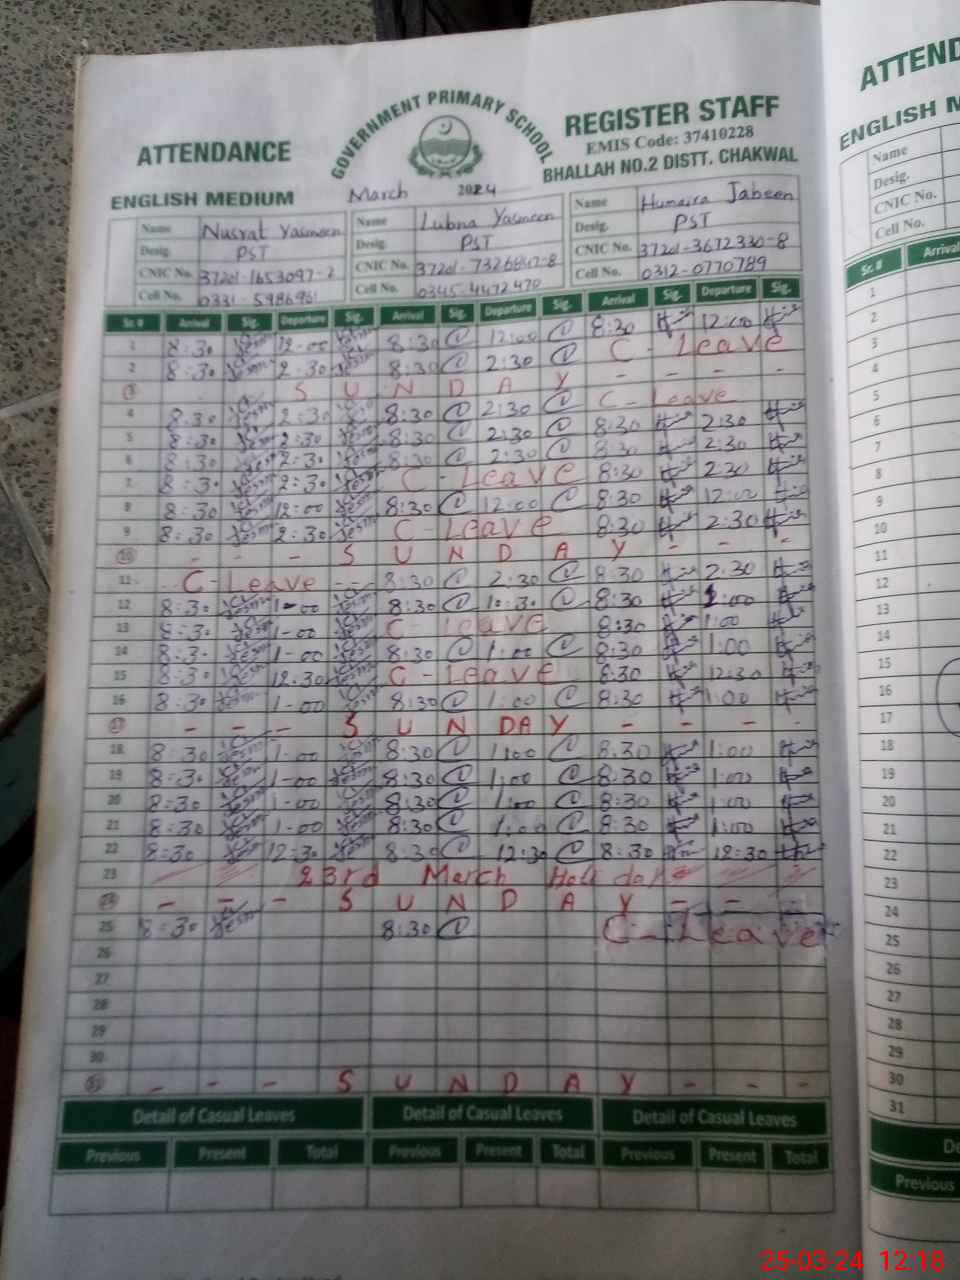 GOVERNMENT PRIMARY SCHOOL
ATTENDANCE REGISTER STAFF
EMIS Code: 37410228
BHALLAH NO.2 DISTT. CHAKWAL
ENGLISH MEDIUM March 2024
Name Nusrat Yasmeen Name Lubna Yasmeen Name Humaira Jabeen
Desig. PST Desig. PST Desig. PST
CNIC No. 37201-1653097-2 CNIC No. 37201-7326847-8 CNIC No. 37201-3672330-8
Cell No. 0331-5986961 Cell No. 0345-4472470 Cell No. 0312-0770789
Sr. # Arrival Sig. Departure Sig. Arrival Sig. Departure Sig. Arrival Sig. Departure Sig.
1 8:30 12-00 8:30 12:00 8:30 12:00
2 8:30 2:30 8:30 2:30 C-Leave
3 S U N D A Y - - - -
4 8:30 2:30 8:30 2:30 C-Leave
5 8:30 2:30 8:30 2:30 8:30 2:30
6 8:30 2:30 8:30 2:30 8:30 2:30
7 8:30 2:30 C-Leave 8:30 2:30
8 8:30 12:00 8:30 12:00 8:30 12:00
9 8:30 2:30 C-Leave 8:30 2:30
10 - - - S U N D A Y - - -
11 C-Leave --- 8:30 2:30 8:30 2:30
12 8:30 1-00 8:30 10:30 8:30 1:00
13 8:30 1-00 C-Leave 8:30 1:00
14 8:30 1-00 8:30 1:00 8:30 1:00
15 8:30 12:30 C-Leave 8:30 12:30
16 8:30 1-00 8:30 1:00 8:30 1:00
17 - - - S U N D A Y - - - -
18 8:30 1-00 8:30 1:00 8:30 1:00
19 8:30 1-00 8:30 1:00 8:30 1:00
20 8:30 1-00 8:30 1:00 8:30 1:00
21 8:30 1-00 8:30 1:00 8:30 1:00
22 8:30 12:30 8:30 12:30 8:30 12:30
23 23rd March
24 - - - S U N D A Y - - -
25 8:30 8:30 C-Leave
26
27
28
29
30
31 - - - S U N D A Y - - -
Detail of Casual Leaves Detail of Casual Leaves Detail of Casual Leaves
Previous Present Total Previous Present Total Previous Present Total
ATTEND
ENGLISH M
Name
Desig.
CNIC No.
Cell No.
Sr. # Arrival
1
2
3
4
5
6
7
8
9
10
11
12
13
14
15
16
17
18
19
20
21
22
23
24
25
26
27
28
29
30
31
De
Previous
25-03-24 12:18